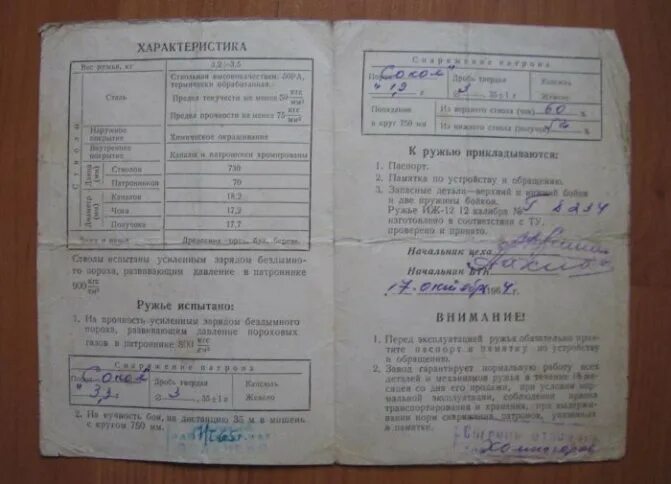 ХАРАКТЕРИСТИКА
Вес ружья, кг 3,2—3,5
Стволы
Сталь
Ствольная высококачествен. 50РА,
термически обработанная.
Предел текучести не менее 50 кгс/мм²
Предел прочности не менее 75 кгс/мм²
Наружное покрытие Химическое окрашивание
Внутреннее покрытие Каналы и патронники хромированы
Длина (мм)
Стволов 730
Патронников 70
Диаметр (мм)
Каналов 18,2
Чока 17,2
Получока 17,7
Ложа и цевьё Древесина: орех, бук, береза.
Стволы испытаны усиленным зарядом бездымно-
го пороха, развивающим давление в патроннике
900 кгс/см²
Ружье испытано:
1. На прочность усиленным зарядом бездымного
пороха, развивающим давление пороховых
газов в патроннике 800 кгс/см²
Снаряжение патрона
"Сокол" Дробь твердая Капсюль
3, 35±1 г Жевело
2. На кучность боя, на дистанцию 35 м в мишень
с кругом 750 мм.
Снаряжение патрона
Порох "Сокол" Дробь твердая Капсюль
3, 35±1 г Жевело
Попадание
в круг 750 мм
Из верхнего ствола (чок) 60 %
Из нижнего ствола (получок) %
К ружью прикладываются:
1. Паспорт.
2. Памятка по устройству и обращению.
3. Запасные детали—верхний и нижний бойки
и две пружины бойков.
Ружье ИЖ-12 12 калибра №
изготовлено в соответствии с ТУ,
проверено и принято.
Начальник цеха
Начальник БТК
17. октября 1964 г.
ВНИМАНИЕ!
1. Перед эксплуатацией ружья обязательно прочи-
тайте паспорт и памятку по устройству
и обращению.
2. Завод гарантирует нормальную работу всех
деталей и механизмов ружья в течение
сяцев со дня его продажи, при условии нор-
мальной его эксплуатации, соблюдения правил
транспортирования и хранения, при выдержи-
вании норм снаряжения патронов, указанных
в памятке.